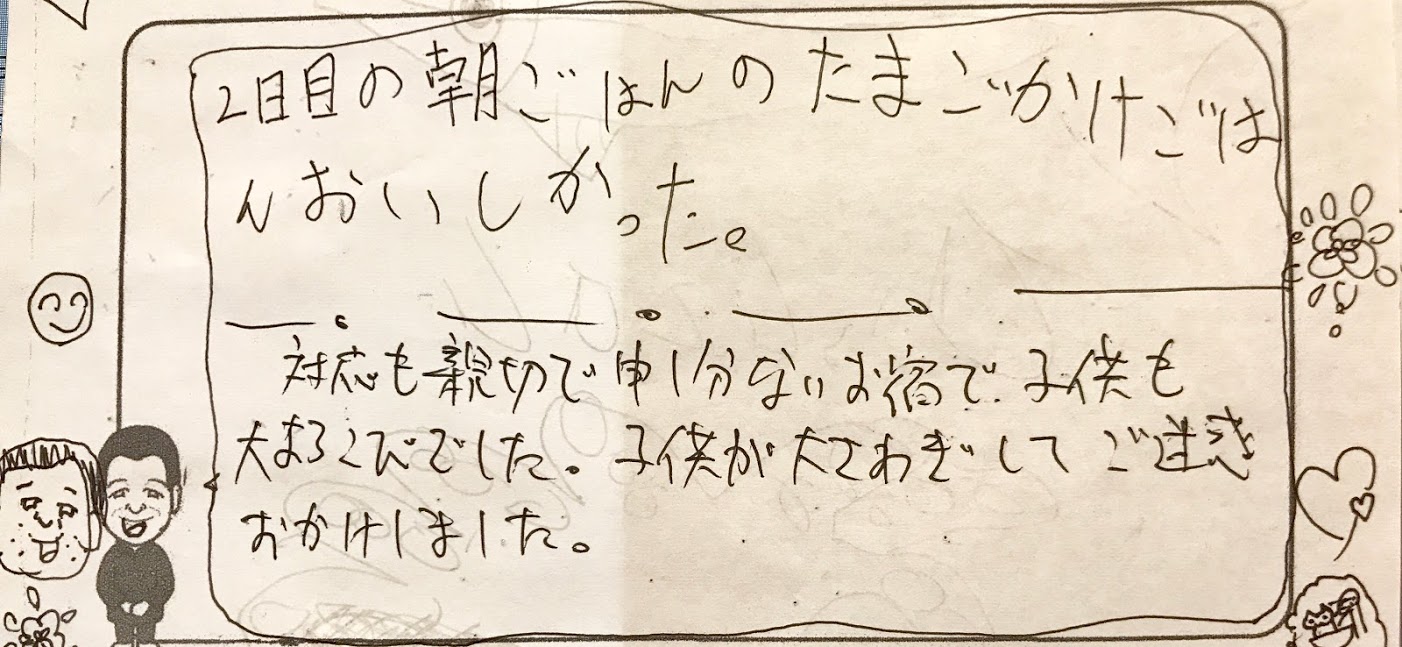 2日目の朝ごはんのたまごかけごは
んおいしかった。
対応も親切で申し分ないお宿で、子供も
大よろこびでした。子供が大さわぎしてご迷惑
おかけしました。